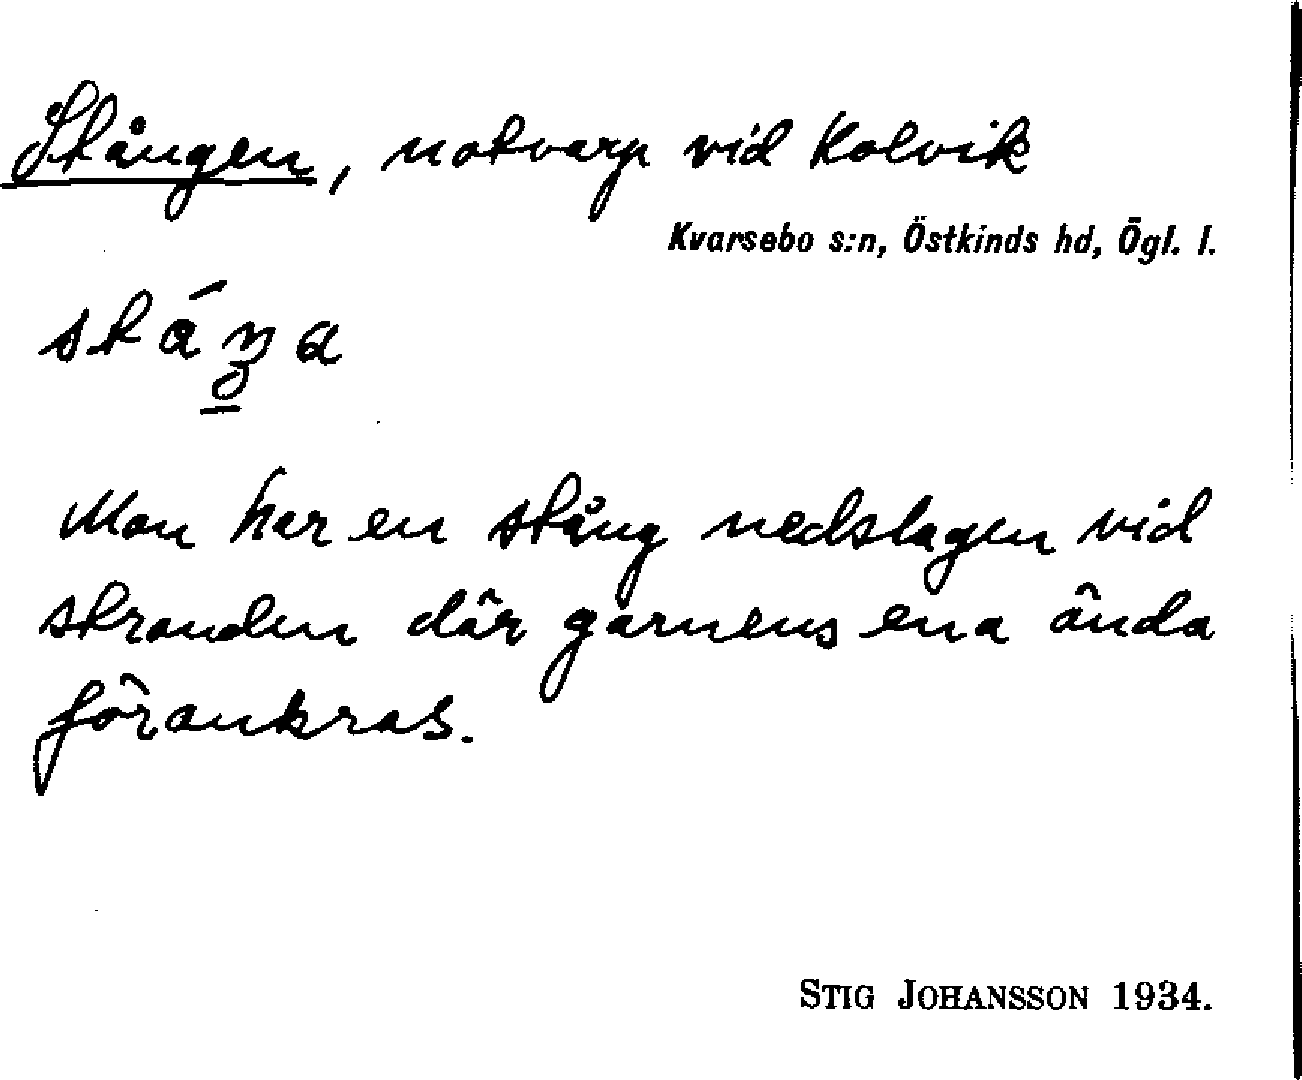 Stången, notvarp vid Kolvik
Kvarsebo s:n, Östkinds hd, Ögl. l.
Man har en stång nedslagen vid
stranden där garnens ena ända
förankras.
STIG JOHANSSON 1934.